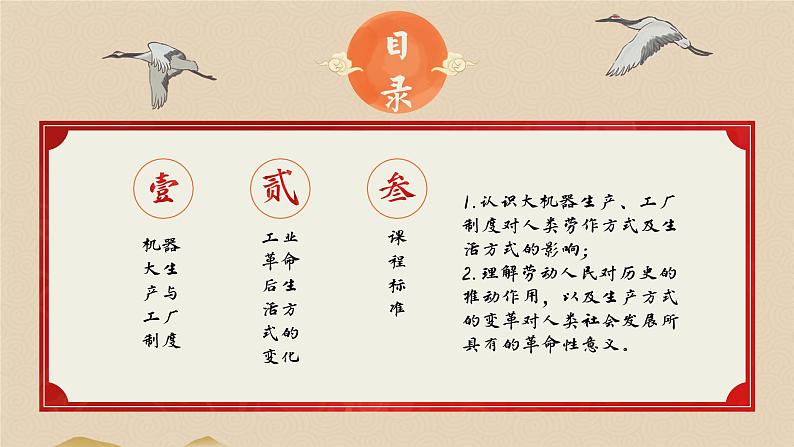 目
录
壹
机器
大生
产与
工厂
制度
贰
工业
革命
后生
活方
式的
变化
叁
课
程
标
准
1.认识大机器生产、工厂
制度对人类劳作方式及生
活方式的影响；
2.理解劳动人民对历史的
推动作用，以及生产方式
的变革对人类社会发展所
具有的革命性意义。